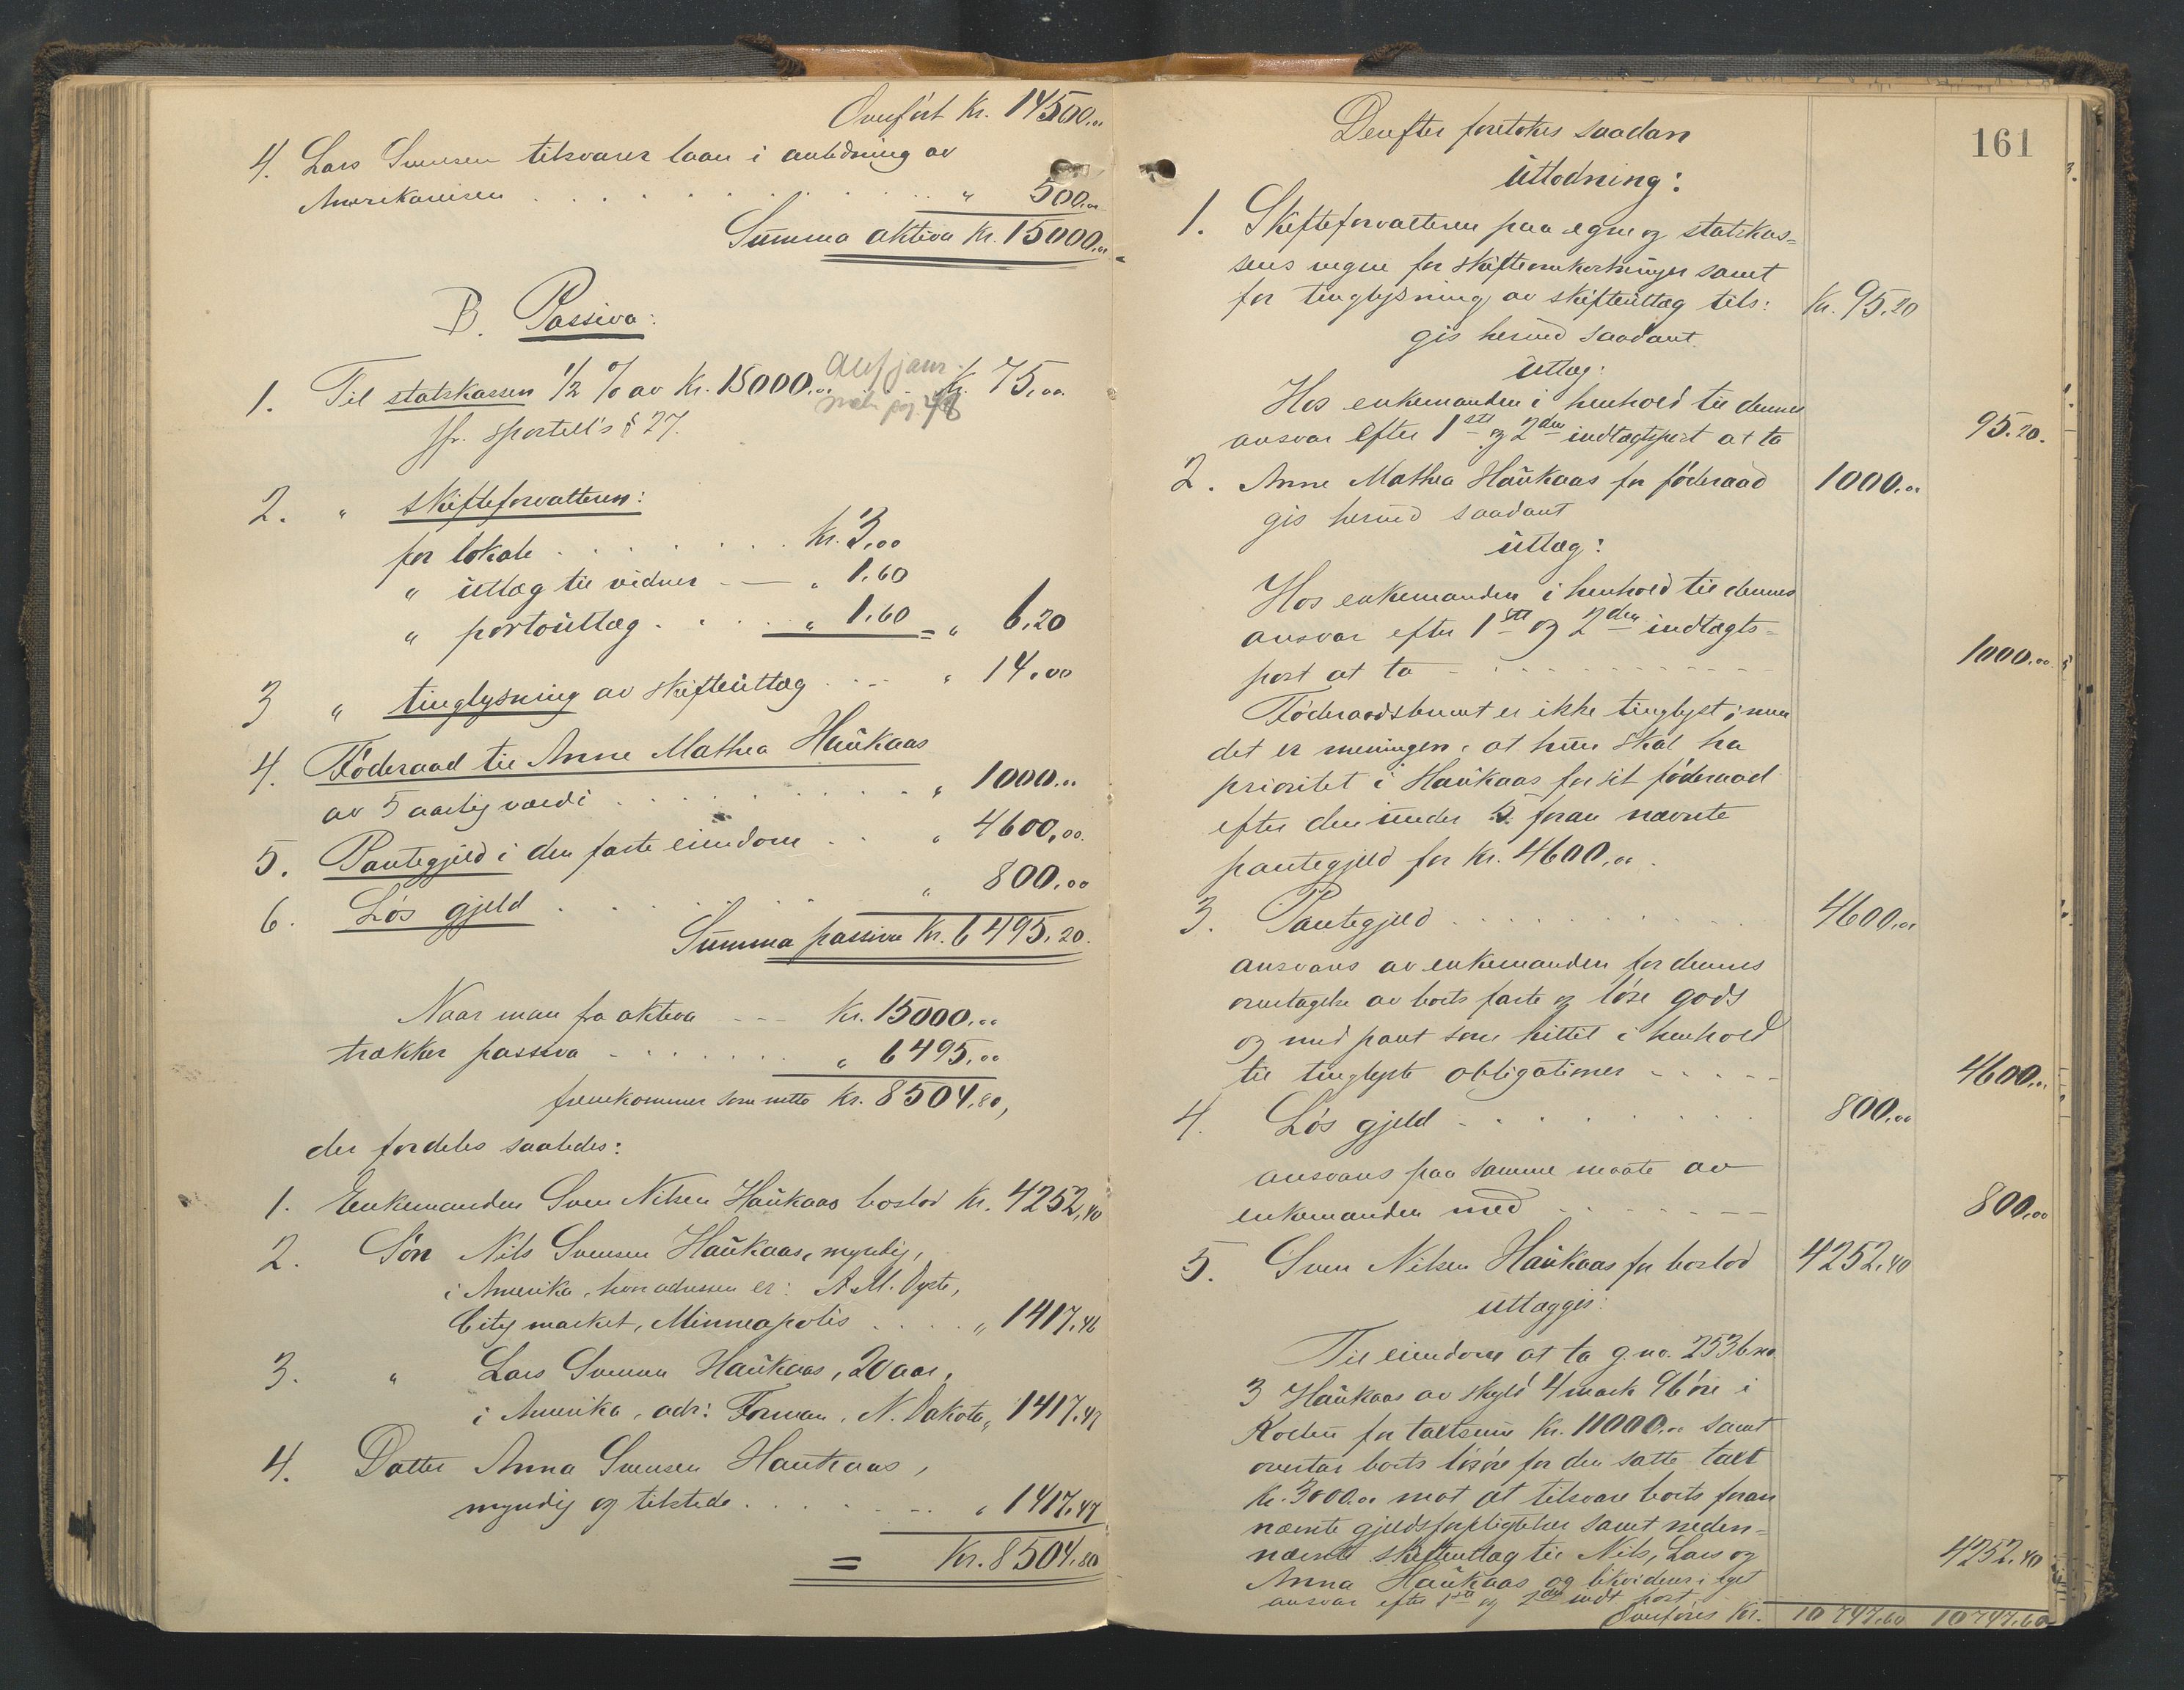 Overført Kr. 14500.00
4. Lars Svensen tilsvarer laan i anledning av
Amerikareisen . . . . . . . . . " 500.00
Summa aktiva Kr. 15000.00
B. Passiva:
1. Til statskassen 1/2 % av Kr. 15000.00 Kr. 75.00
jfr. sportell's § 27.
2. " skifteforvalteren:
for lokale . . . . . . . Kr. 3.00
" utlæg til vidner — — " 1.60
" portoutlæg . . . . " 1.60 = " 6.20
3 " tinglysning av skifteutlæg . . . " 14.00
4. Föderaad til Anne Mathea Haukaas
av 5 aarlig værdi . . . . . . . . " 1000.00
5. Pantegjeld i den faste eiendom . . " 4600.00
6. Løs gjeld . . . . . . . " 800.00
Summa passiva Kr. 6495.20.
Naar man fra aktiva - - - Kr. 15000.00
trækker passiva - . . . . . . " 6495.00
fremkommer som netto Kr. 8504.80,
der fordeles saaledes:
1. Enkemanden Sven Nilsen Haukaas boslod Kr. 4252,40
2. Søn Nils Svensen Haukaas, myndig,
i Amerika, hvis adressen er: A. M.
City market, Minneapolis . . . . " 1417,46
3. " Lars Svensen Haukaas, 20 aar,
i Amerika, adr: Forman, N. Dakota " 1417,47
4. Datter Anna Svensen Haukaas,
myndig og tilstede . . . . . . . " 1417,47
= Kr. 8504.80
161
Derefter foretokes saadan
Utlodning:
1. Skifteforvalteren paa egne og statskas=
sens vegne for skifteomkostninger samt
for tinglysning av skifteutlæg tils: Kr. 95.20
gis herved saadant
utlæg:
Hos enkemanden i henhold til dennes
ansvar efter 1ste og 2den indtægtspost at ta 95.20.
2. Anne Mathea Haukaas for föderaad 1000.00
gis herved saadant
utlæg:
Hos enkemanden i henhold til dennes
ansvar efter 1ste og 2den indtægts=
post at ta - . . . . . . . . . 1000.00
Föderaadsbrevet er ikke tinglyst; men
det er meningen, at hun skal ha
prioritet i Haukaas for sit föderaad
efter den under 5. foran nævnte
pantegjeld for Kr. 4600,00.
3. Pantegjeld . . . . . . . . . 4600.00
ansvares av enkemanden for dennes
overtagelse av boets faste og løse gods
og med pant som hittil i henhold
til tinglyste obligationer - - - - - 4600.00
4. Løs gjeld - . . . . . . . 800.00
ansvares paa samme maate av
enkemanden med . . . . . . . 800.00
5. Sven Nilsen Haukaas for boslod 4252.40
utlægges:
Til eiendom at ta g.no. 253 b.no.
3 Haukaas av skyld 4 mark 96 øre i
for takstsum Kr. 11000.00 samt
overtar boets løsøre for den satte takst
Kr. 3000.00 mot at tilsvare boets foran
nævnte gjeldsforpligtelser samt neden=
nævnte skifteutlæg til Nils, Lars og
Anna Haukaas og likviderer i eget
ansvar efter 1ste og 2den indt. post. 4252.40
Overføres Kr. 10747.60 10747.60